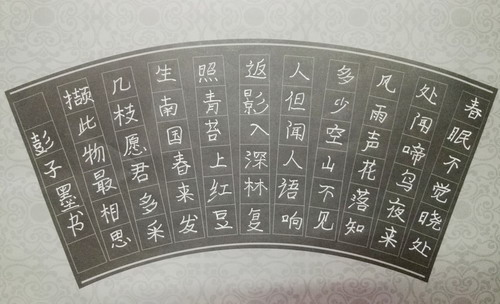 春眠不觉晓处
处闻啼鸟夜来
风雨声花落知
多少空山不见
人但闻人语响
返影入深林复
照青苔上红豆
生南国春来发
几枝愿君多采
撷此物最相思
彭子墨书